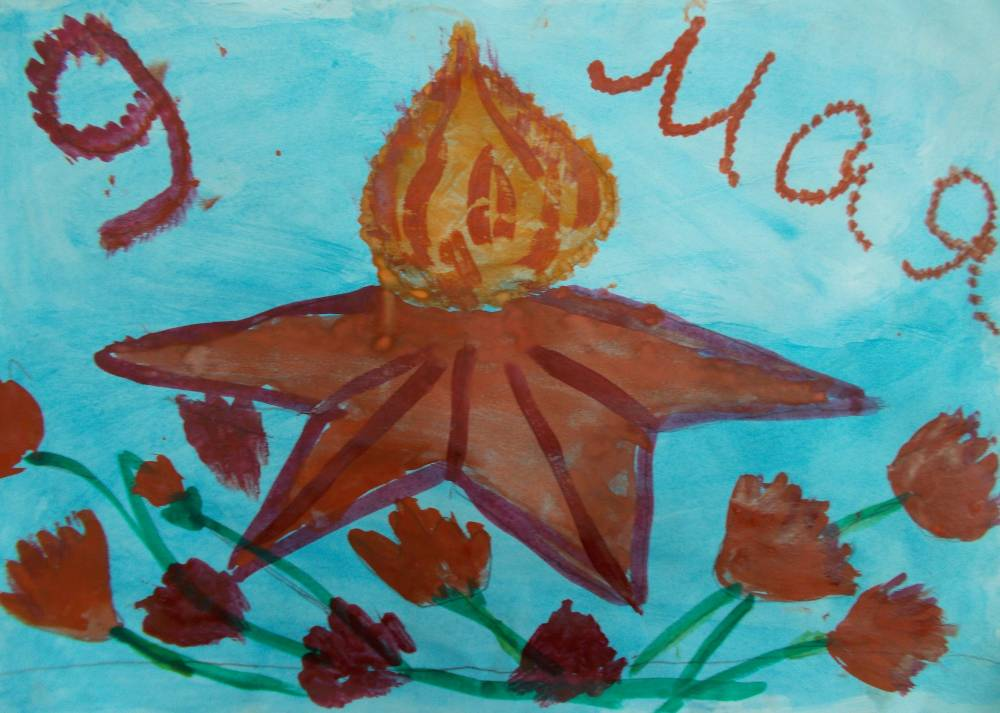 9 Мая